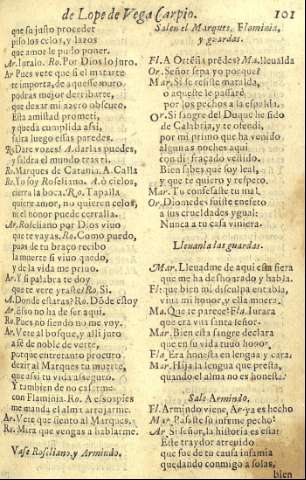 de Lope de Vega Carpio. 101
que su justo proceder
piso los celos, y lazos
que amor le pudo poner.
Ar. Iuralo. Ro. Por Dios lo juro.
Ar Pues vete que si el matarte
te importa, de aquese muro
podras mejor derribarte,
que dexar mi azero obscuro.
Esta amistad prometi
y queda cumplida assi,
salta luego essas paredes.
Ro. Dare vozes? A. darlas puedes,
y saldra el mundo tras ti.
Ro. Marques de Catania. A. Calla
Ro. Yo soy Roseliano. A. ò cielos,
cierra la boca. Ro. Tapalla
quiere amor, no quieren celos,
ni el honor puede cerralla.
Ar. Roseliano por Dios viuo
que te vayas. Ro. Como puedo,
pues de tu braço recibo
la muerte si viuo quedo,
y de la vida me priuo.
Ar. Y si palabra te doy
que te vere yràste? Ro. Si.
A. Donde estaràs? Ro. Dõde estoy
Ar. Esso no ha de ser aqui.
Ro. Pues no siendo no me voy.
Ar. Vete al bosque, y alli juro
a fè de noble de verte,
porque entretanto procuro
dezir al Marques tu muerte,
que assi tu vida asseguro.
Y tambien de no casarme
con Flaminia. Ro. A essos pies
me manda el alma arrojarme.
Ar. Vete que siento al Marques,
Ro. Mira que vengas a hablarme.
Vase Roseliano, y Armindo.
Salen el Marques, Flaminia,
y guardas.
Fl. A Ortẽsia prẽdes? Ma. lleualda
Or. Señor sepa yo porque?
Mar. Si se resiste matalda,
o aqueste le passarè
por los pechos a la espalda.
Or. Si sangre del Duque he sido
de Calabria, y te ofendi,
por mi primo que ha venido
algunas noches aqui
con disfraçado vestido.
Bien sabes que soy leal,
y que te quiero y respeto.
Mar. Tu confessaste tu mal,
Or. Diomedes fuiste en efeto
a sus crueldades ygual:
Nunca a tu casa viniera.
Lleuanla las guardas.
Mar. Lleuadme de aqui essa fiera
que me ha deshonrado y habla.
Fl: que bien mi disculpa entabla,
viua mi honor, y ella muera.
Ma. Que te parece? Fla. Iurara
que era vna santa señor.
Mar. Bien esta sangre declara
que en su vida tuuo honor
Fla. Era honesta en lengua y cara.
Mar. Hija la lengua que presta,
quando el alma no es honesta.
Sale Armindo.
Fl. Armindo viene, Ar. ya es hecho
Mar. Passaste su infame pecho?
Ar. Si señor, la historia es esta:
Este traydor atreuido
que fue de tu causa infamia
quedando conmigo a solas,
bien